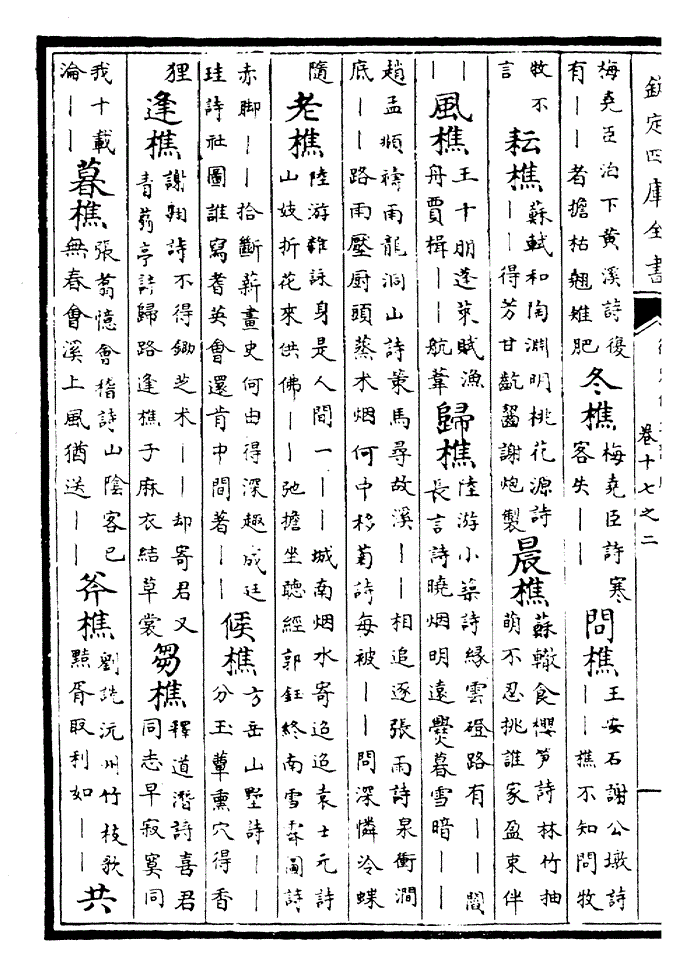 欽定四庫全書
卷十七之二
梅堯臣泊下黄溪詩復
有——者擔枯翹雉肥
冬樵
梅堯臣詩寒
客失——
問樵
王安石謝公墩詩
——樵不知問牧
牧不
言
耘樵
蘇軾和陶淵明桃花源詩
——得芳甘齕齧謝炮製
晨樵
蘇轍食櫻笋詩林竹抽
萌不忍挑誰家盈束伴
—
—
風樵
王十朋蓬萊賦漁
舟賈楫——航葦
歸樵
陸游小築詩緣雲磴路有——閻
長言詩曉烟明遠爨暮雪暗——
趙孟頫禱雨龍洞山詩策馬尋故溪——相追逐張雨詩泉衡澗
底——路雨壓厨頭蒸术烟何中移菊詩每被——問深憐冷蝶
隨
老樵
陸游雜詠身是人間一——城南烟水寄迢迢袁士元詩
山妓折花來供佛——弛擔坐聽經郭鈺終南雪霽圖詩
赤脚——拾斷薪畫史何由得深趣成廷
珪詩社圖誰寫耆英會還肯中間著——
候樵
方岳山墅詩——
分玉蕈熏穴得香
狸
逢樵
謝翱詩不得鋤芝术——却寄君又
青蒻亭詩歸路逢樵子麻衣結草裳
芻樵
釋道潛詩喜君
同志早寂寞同
我十載
淪——
暮樵
張翥憶會稽詩山陰客已
無春會溪上風猶送——
斧樵
劉詵沅州竹枝歌
黠胥取利如——
共